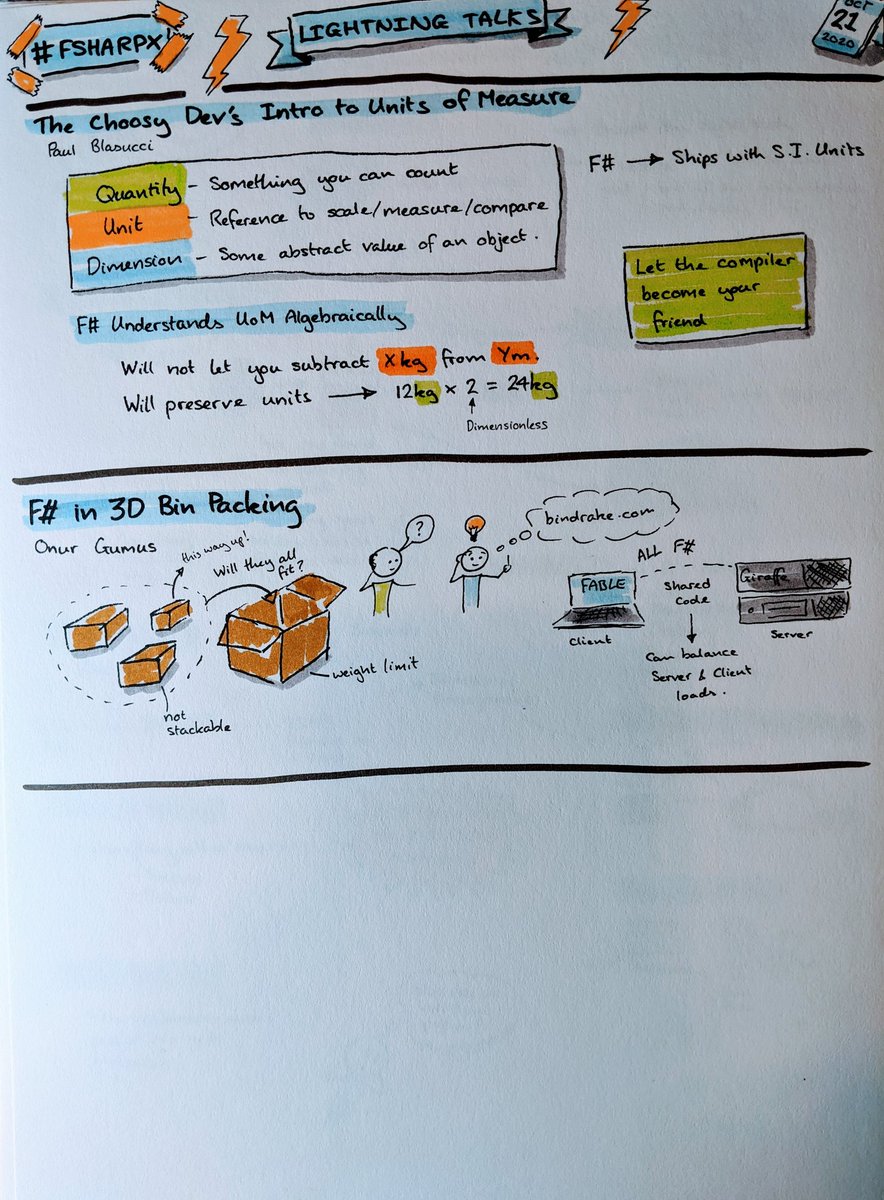 #FSHARPX
LIGHTNING TALKS
OCT
21
2020
The Choosy Dev's Intro to Units of Measure
Paul Blasucci
Quantity - Something you can count
Unit - Reference to scale/measure/compare
Dimension - Some abstract value of an object.
F# → Ships with S.I. Units
Let the compiler
become your
friend
F# Understands UoM Algebraically
Will not let you subtract X kg from Ym.
Will preserve units → 12kg × 2 = 24kg
Dimensionless
F# in 3D Bin Packing
Onur Gumus
this way up!
Will they all
fit?
not
stackable
weight limit
?
bindrake.com
ALL F#
FABLE
Client
Shared
Code
Giraffe
Server
Can balance
Server & Client
loads.